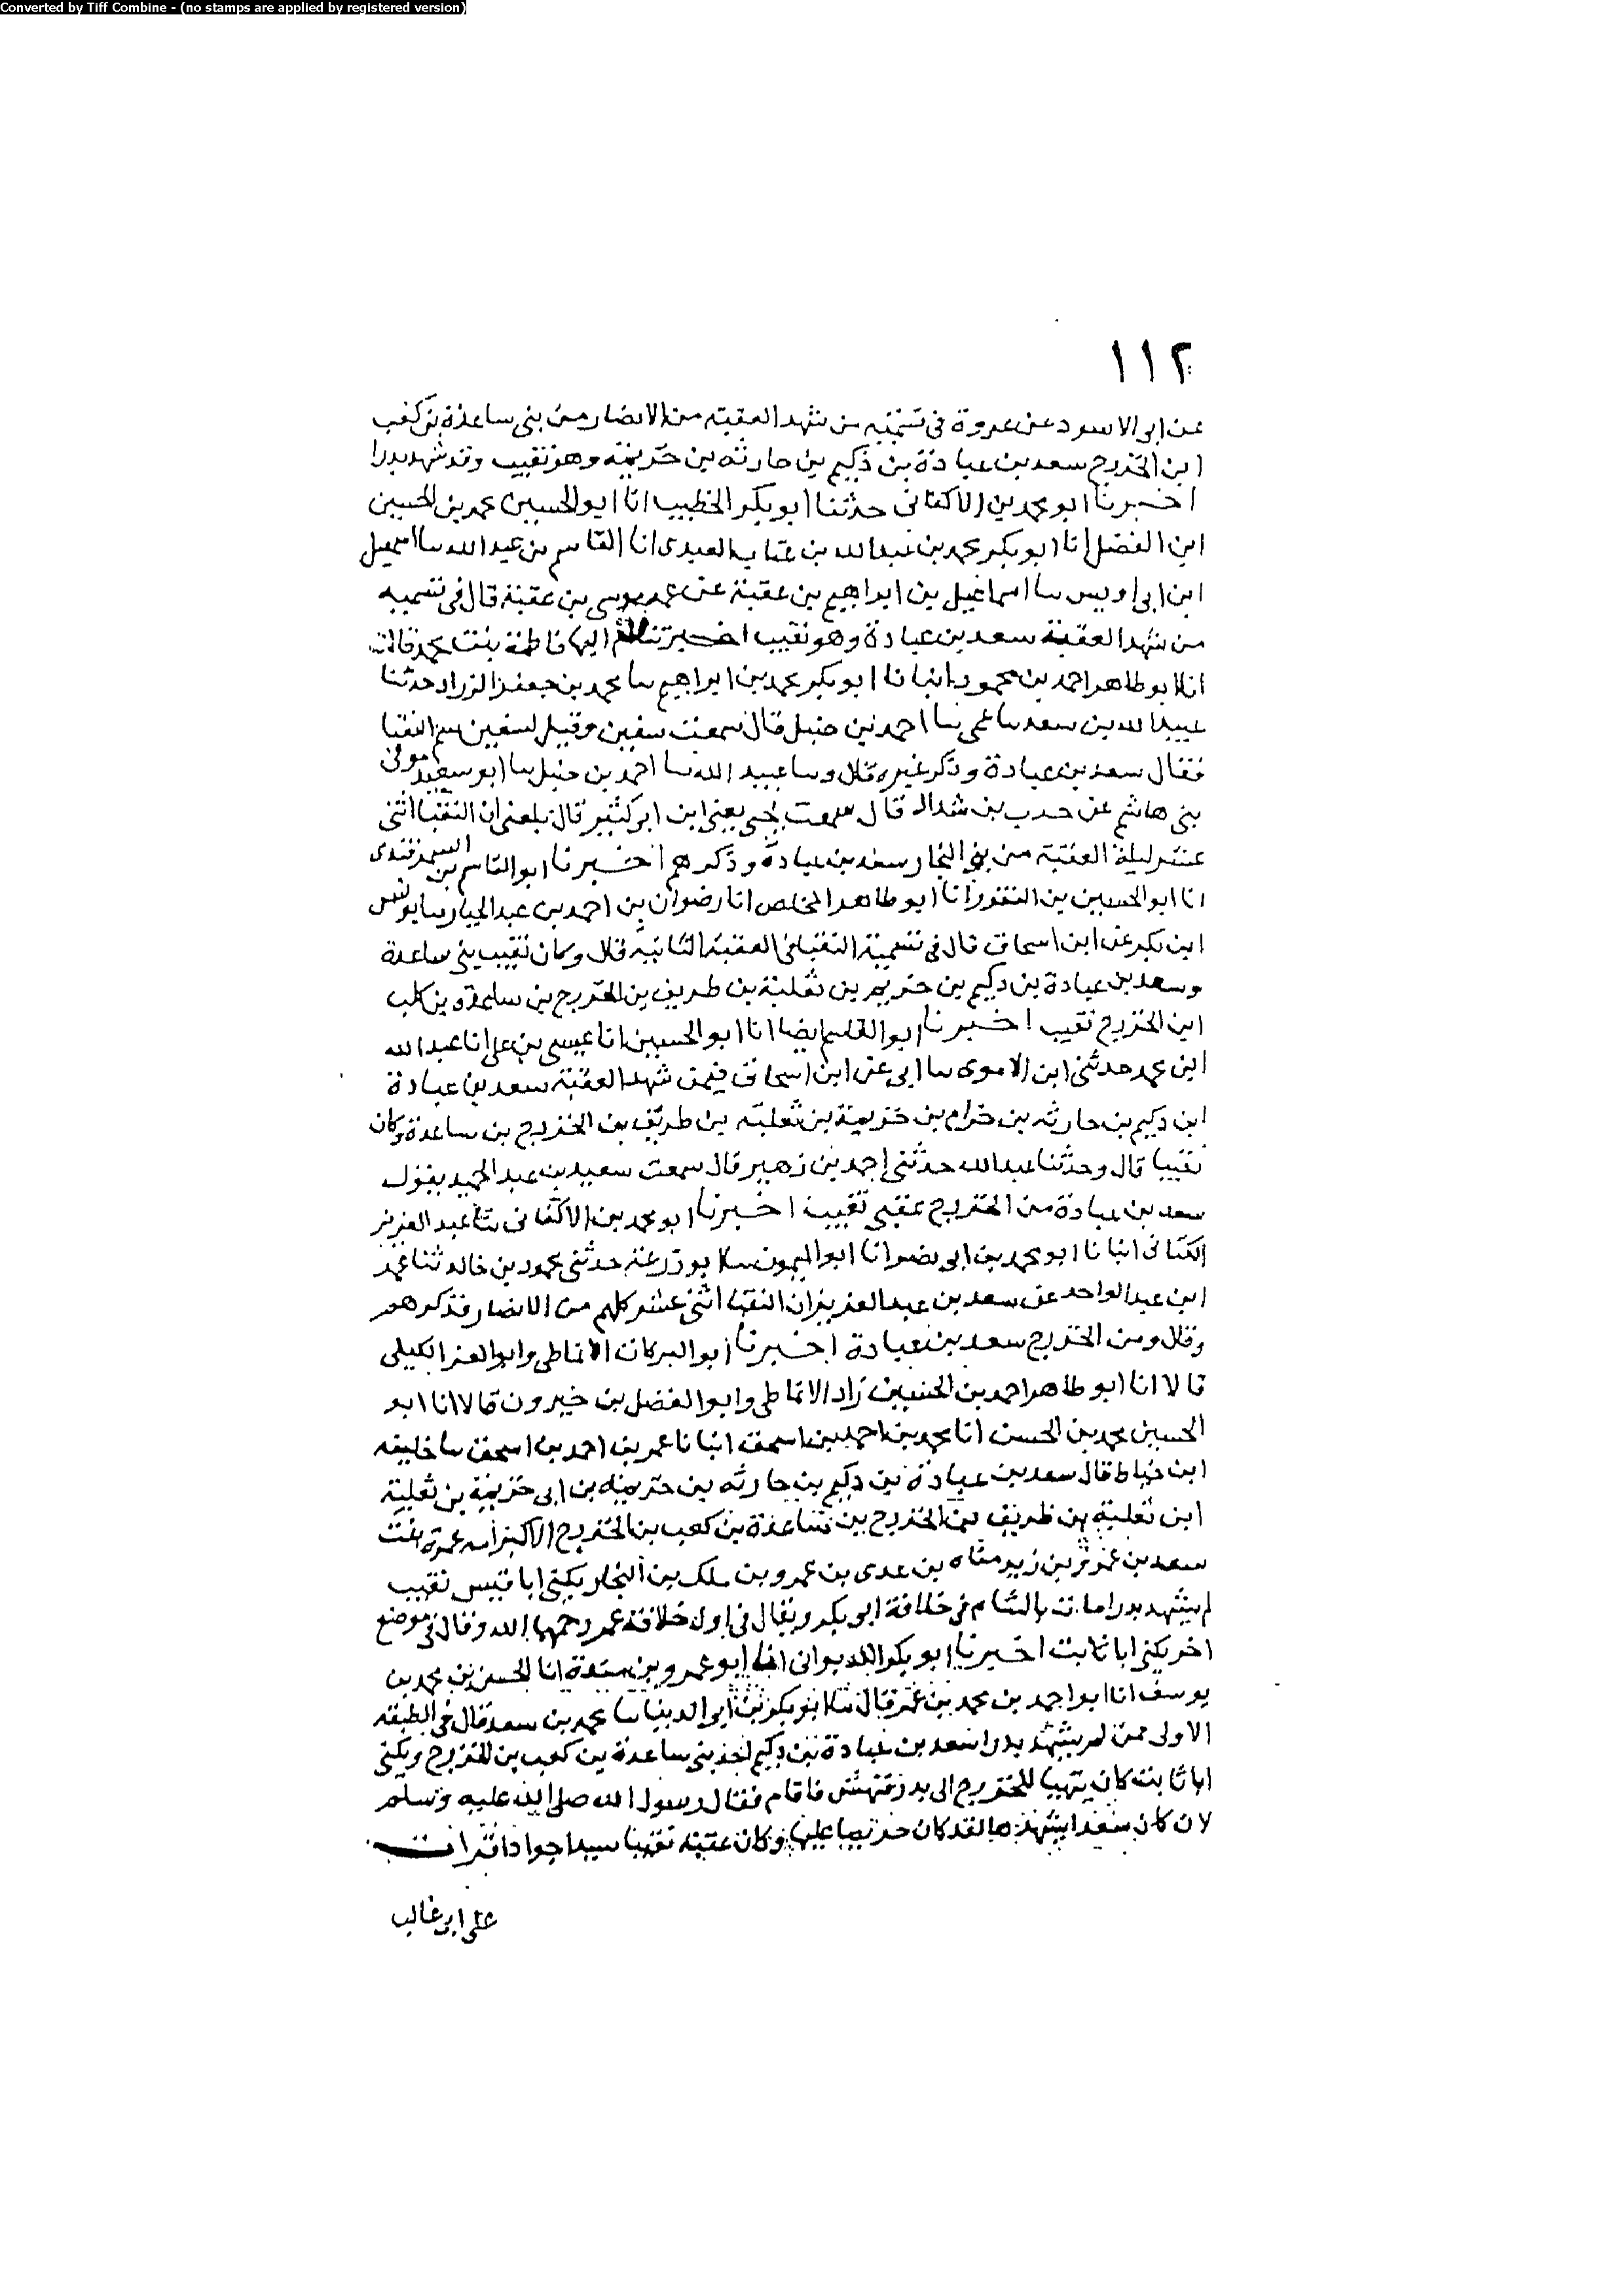 Converted by Tiff Combine - (no stamps are applied by registered version)
١١٢
عن ابى الاسود عن عروة فى تسمية من شهد العقبة من الانصار من بنى ساعدة بن كعب
ابن الخزرج سعد بن عبادة بن دكيم بن حارثه بن خزيمة وهو نقيب وقد شهد بدرا
اخبرنا ابو محمد بن الاكفانى حدثنا ابو بكر الخطيب انا ابو الحسين محمد بن الحسين
ابن الفضل انا ابو بكر محمد بن عبد الله بن عتاب العبدى انا القاسم بن عبد الله سا اسمعيل
ابن ابى اويس سا اسماعيل بن ابراهيم بن عقبة عن عمه موسى بن عقبة قال فى تسميه
من شهد العقبة سعد بن عبادة وهو نقيب اخبرتنا ام البها فاطمة بنت محمد قالت
انا ابو طاهر احمد بن محمود انبانا ابو بكر محمد بن ابراهيم سا محمد بن جعفر الزراد حدثنا
عبيد الله بن سعد سا عمى سا احمد بن حنبل قال سمعت سفين وقيل لسفين سم النقبا
فقال سعد بن عبادة وذكر غيره قال وسا عبيد الله سا احمد بن حنبل سا ابو سعيد مولى
بنى هاشم عن حرب بن شداد قال سمعت يحيى يعنى ابن ابى كثير قال بلغنى ان النقبا اثنى
عشر ليلة العقبة من بنى النجار سعد بن عبادة وذكرهم اخبرنا ابو القاسم بن السمرقندى
انا ابو الحسين بن النقور انا ابو طاهر المخلص انا رضوان بن احمد بن عبد الجبار سا يونس
ابن بكر عن ابن اسحاق قال فى تسمية النقبا فى العقبة الثانيه قال وكان نقيب بنى ساعدة
وسعد بن عبادة بن دكيم بن خزيم بن ثعلبة بن طريف بن الخزرج بن ساعدة بن كلب
ابن الخزرج نقيب اخبرنا ابو القاسم ايضا انا ابو الحسين انا عيسى بن على انا عبد الله
ابن محمد حدثنى ابن الاموى سا ابى عن ابن اسحاق فيمن شهد العقبة سعد بن عبادة
ابن دكيم بن حارثه بن حرام بن خزيمة بن ثعلبه بن طريف بن الخزرج بن ساعدة وكان
نقيبا قال وحدثنا عبد الله حدثنى احمد بن زهير قال سمعت سعيد بن عبد الحميد يقول
سعد بن عبادة من الخزرج عقبى نقيب اخبرنا ابو محمد بن الاكفانى سا عبد العزيز
الكتانى انبانا ابو محمد بن ابى نصر انا ابو الميمون سا ابو زرعة حدثنى محمود بن خالد ثنا عمر
ابن عبد الواحد عن سعد بن عبد العزيز ان النقبا اثنى عشر كلهم من الانصار فذكرهم
وقال ومن الخزرج سعد بن عبادة اخبرنا ابو البركات الانماطى وابو العز الكيلى
قالا انا ابو طاهر احمد بن الحسين زاد الانماطى وابو الفضل بن خيرون قالا انا ابو
الحسين محمد بن الحسن انا محمد بن احمد بن اسحق انبانا عمر بن احمد بن اسحق سا خليفه
ابن خياط قال سعد بن عبادة بن دكيم بن حارثه بن خزيمه بن ابى خزيمة بن ثعلبة
ابن ثعلبة بن طريف بن الخزرج بن ساعدة بن كعب بن الخزرج الاكبر امه عمرة بنت
سعد بن عمرو بن زيد مناه بن عدى بن عمرو بن ملك بن النجار يكنى ابا قيس نقيب
لم يشهد بدرا مات بالشام فى خلافة ابى بكر ويقال فى اول خلافة عمر رحمهما الله وقال فى موضع
اخر يكنى ابا ثابت اخبرنا ابو بكر اللديوانى انا ابو عمرو بن مندة انا الحسن بن محمد بن
يوسف انا ابو احمد بن محمد بن عمر قال سا ابو بكر بن ابى الدنيا سا محمد بن سعد قال فى الطبقه
الاولى ممن لم يشهد بدرا سعد بن عبادة بن دكيم احد بنى ساعدة بن كعب بن الخزرج ويكنى
ابا ثابت كان يتهيا للخروج الى بدر فنهش فاقام فقال رسول الله صلى الله عليه وسلم
لان كان سعد لم يشهدها لقد كان حريصا عليها وكان عقبيه نقيبا سيدا جوادا قرات
على ابى غالب